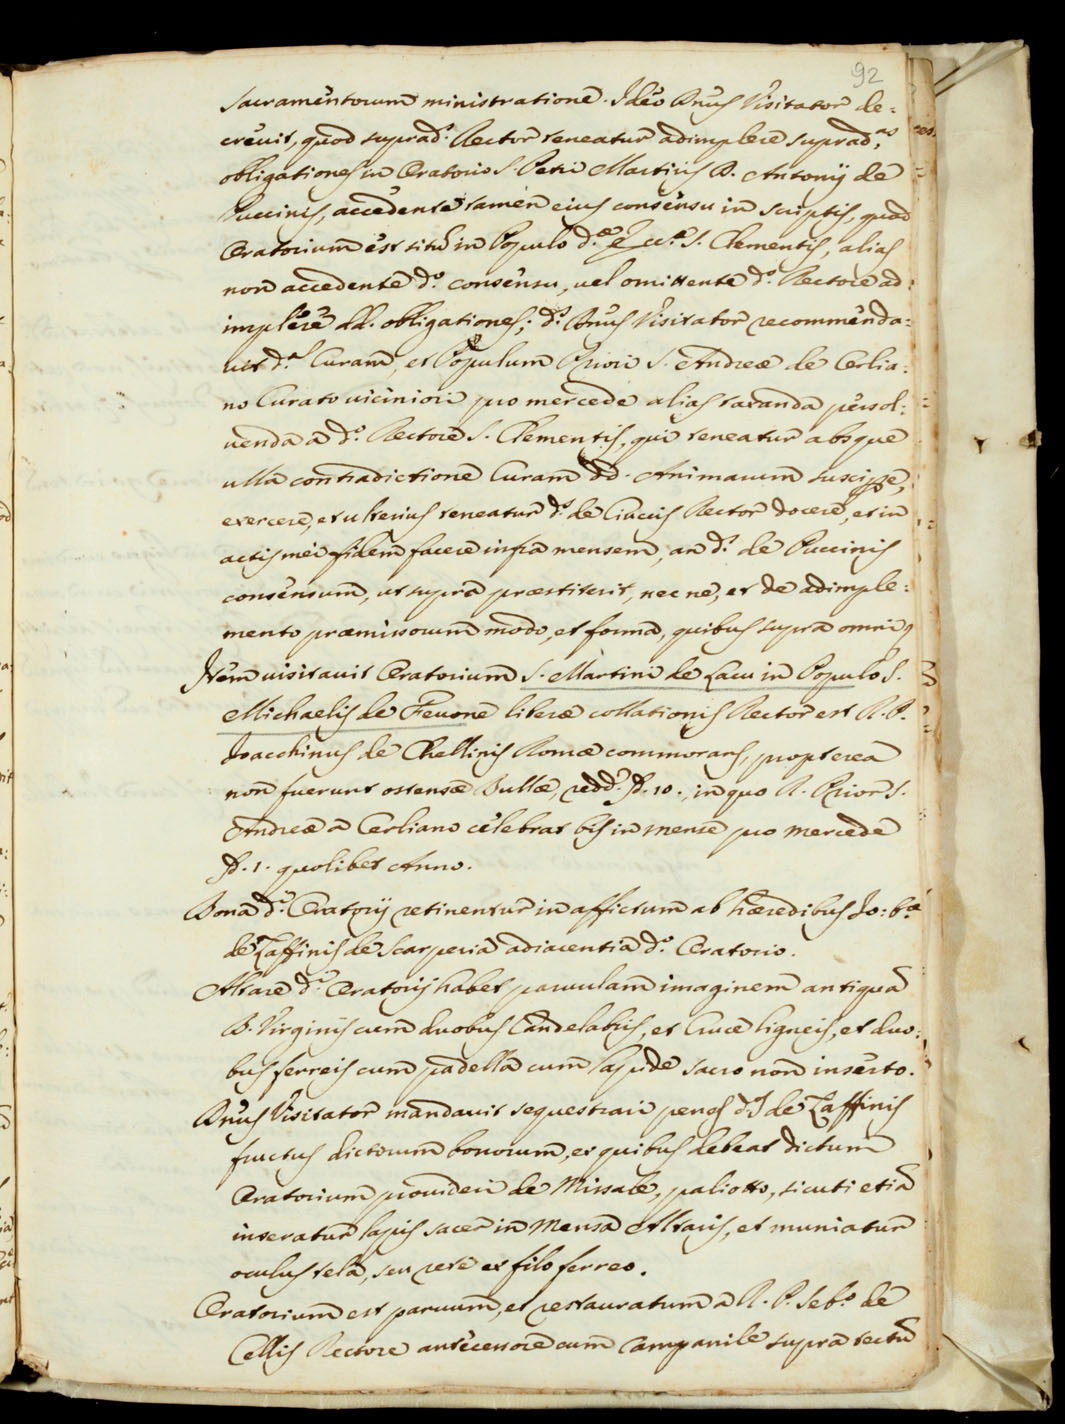 92
Sacramentorum ministratione. Ideo Dnus Visitator de=
crevit, quod suprad.s Rector teneatur adimplere suprad.as
obligationes in Oratorio S. Petri Martiris D. Antonij de
Puccinis, accedente tamen eius consensu in scriptis, quod
Oratorium est situ in Populo d.æ Ecc.æ S. Clementis, alias
non accedente d.o consensu, vel omittente d.o Rectore ad
implere dd. obligationes; d.s Dnus Visitator recommenda=
vit d.a Curam, et Populum Priori S. Andreæ de Cerlia=
no Curato viciniori pro mercede alias taxanda persol=
venda a d.o Rectore S. Clementis, qui teneatur absque
ulla contradictione Curam dd. Animarum suscipe,
exercere, et ulterius teneatur d.s de Ciuccis Rector docere, et in
actis mei fidem facere infra mensem, an d.s de Puccinis
consensum, ut supra præstiterit, nec ne, et de adimple=
mento præmissorum modo, et forma, quibus supra omni
Item visitavit Oratorium S. Martini de Lacu in Populo S.
Michaelis de Ferrone liberæ collationis Rector est R. P.
Joacchinus de Chellinis Romæ commorans, propterea
non fuerunt ostensæ Bullæ, redd. sd. 10., in quo R. Prior S.
Andreæ a Cerliano celebrat bis in mense pro mercede
sd. 1. quolibet Anno.
Bona d.i Oratorij retinentur in affictum ab hæredibus Jo: b.æ
de Zaffinis de Scarperia adiacentia d.o Oratorio.
Altare d.i Oratorij habet parvulam imaginem antiqua
B. Virginis cum duobus Candelabris, et Cruce ligneis, et duo=
bus ferreis cum padella cum lapide sacro non inserto.
Dnus Visitator mandavit sequestrari penes dd de Zaffinis
fructus dictorum bonorum, ex quibus debeat dictum
Oratorium provideri de Missale, paliotto, sicuti etia
inseratur lapis sacer in Mensa Altaris, et muniatur
oculus tela, seu rete ex filo ferreo.
Oratorium est parvum, et restauratum a R. P. Seb.o de
Cellis Rectore antecessore cum Campanile supra tectu